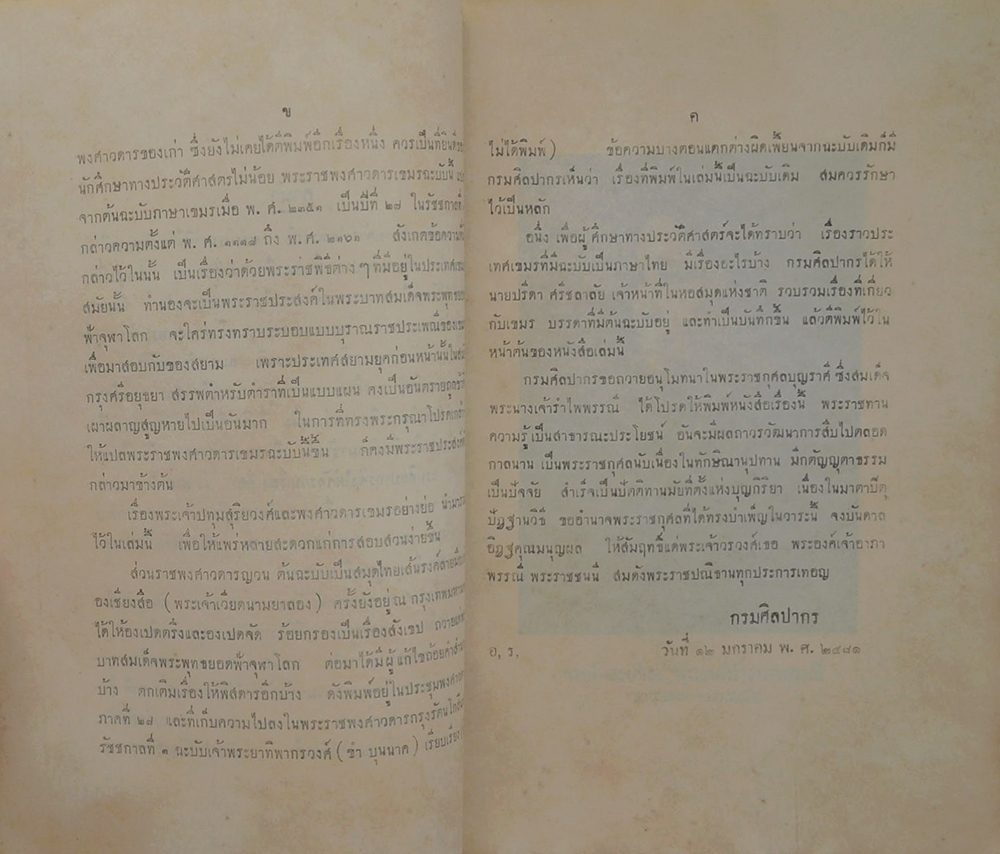 ข
พงศาวดารของเก่า ซึ่งยังไม่เคยได้ตีพิมพ์อีกเรื่องหนึ่ง ควรเป็นที่ยินดี
นักศึกษาทางประวัติศาสตร์ไม่น้อย พระราชพงศาวดารเขมรฉะบับนี้
จากต้นฉะบับภาษาเขมรเมื่อ พ. ศ. ๒๓๕๑ เป็นปีที่ ๒๘ ในรัชชกาลที่
กล่าวความตั้งแต่ พ. ศ. ๑๑๑๘ ถึง พ. ศ. ๒๑๖๑ สังเกตข้อความ
กล่าวไว้ในนั้น เป็นเรื่องว่าด้วยพระราชพิธีต่าง ๆ ที่มีอยู่ในประเทศเขมร
สมัยนั้น ทำนองจะเป็นพระราชประสงค์ในพระบาทสมเด็จพระพุทธยอด
ฟ้าจุฬาโลก จะใคร่ทรงทราบระบอบแบบบุราณราชประเพณีของเขมร
เพื่อมาสอบกับของสยาม เพราะประเทศสยามยุคก่อนหน้านั้นในสมัย
กรุงศรีอยุธยา สรรพตำหรับตำราที่เป็นแบบแผน คงเป็นอันตรายถูกข้าศึก
เผาผลาญสูญหายไปเป็นอันมาก ในการที่ทรงพระกรุณาโปรดเกล้า
ให้แปลพระราชพงศาวดารเขมรฉะบับนี้ขึ้น ก็คงมีพระราชประสงค์
กล่าวมาข้างต้น
เรื่องพระเจ้าปทุมสุริยวงศ์และพงศาวดารเขมรอย่างย่อ นำมารวม
ไว้ในเล่มนี้ เพื่อให้แพร่หลายสะดวกแก่การสอบสวนง่ายขึ้น
ส่วนราชพงศาวดารญวน ต้นฉะบับเป็นสมุดไทยเส้นรงค์ลายมือ
องเชียงสือ (พระเจ้าเวียดนามยาลอง) ครั้งยังอยู่ณ กรุงเทพมหานคร
ได้ให้องเปดตรึงและองเปดจัด ร้อยกรองเป็นเรื่องสังเขป ถวายพระ
บาทสมเด็จพระพุทธยอดฟ้าจุฬาโลก ต่อมาได้มีผู้แก้ไขถ้อยคำสำนวน
บ้าง ตกเติมเรื่องให้พิสดารอีกบ้าง ดังพิมพ์อยู่ในประชุมพงศาวดาร
ภาคที่ ๒๘ และที่เก็บความไปลงในพระราชพงศาวดารกรุงรัตนโกสินทร์
รัชชกาลที่ ๓ ฉะบับเจ้าพระยาทิพากรวงศ์ (ขำ บุนนาค) เรียบเรียง
ค
ไม่ได้พิมพ์) ข้อความบางตอนแตกต่างผิดเพี้ยนจากฉะบับเดิมก็มี
กรมศิลปากรเห็นว่า เรื่องที่พิมพ์ในเล่มนี้เป็นฉะบับเดิม สมควรรักษา
ไว้เป็นหลัก
อนึ่ง เพื่อผู้ศึกษาทางประวัติศาสตร์จะได้ทราบว่า เรื่องราวประ
เทศเขมรที่มีฉะบับเป็นภาษาไทย มีเรื่องอะไรบ้าง กรมศิลปากรได้ให้
นายปรีดา ศรีชลาลัย เจ้าหน้าที่ในหอสมุดแห่งชาติ รวบรวมเรื่องที่เกี่ยว
กับเขมร บรรดาที่มีต้นฉะบับอยู่ และทำเป็นบันทึกขึ้น แล้วตีพิมพ์ไว้ใน
หน้าต้นของหนังสือเล่มนี้
กรมศิลปากรขอถวายอนุโมทนาในพระราชกุศลบุญราศี ซึ่งสมเด็จ
พระนางเจ้ารำไพพรรณี ได้โปรดให้พิมพ์หนังสือเรื่องนี้ พระราชทาน
ความรู้เป็นสาธารณะประโยชน์ อันจะมีผลถาวรวัฒนาการสืบไปตลอด
กาลนาน เป็นพระราชกุศลนับเนื่องในทักษิณานุปทาน มีกตัญญุตาธรรม
เป็นปัจจัย สำเร็จเป็นปัตติทานมัยที่ตั้งแห่งบุญกิริยา เนื่องในมาตาปีตุ
ปัฏฐานวิธี ขออำนาจพระราชกุศลที่ได้ทรงบำเพ็ญในวาระนี้ จงบันดาล
อิฏฐคุณมนุญผล ให้สัมฤทธิ์แด่พระเจ้าวรวงศ์เธอ พระองค์เจ้าอาภา
พรรณี พระราชชนนี สมดังพระราชปณิธานทุกประการเทอญ
กรมศิลปากร
อ, ร. วันที่ ๑๒ มกราคม พ. ศ. ๒๔๘๑